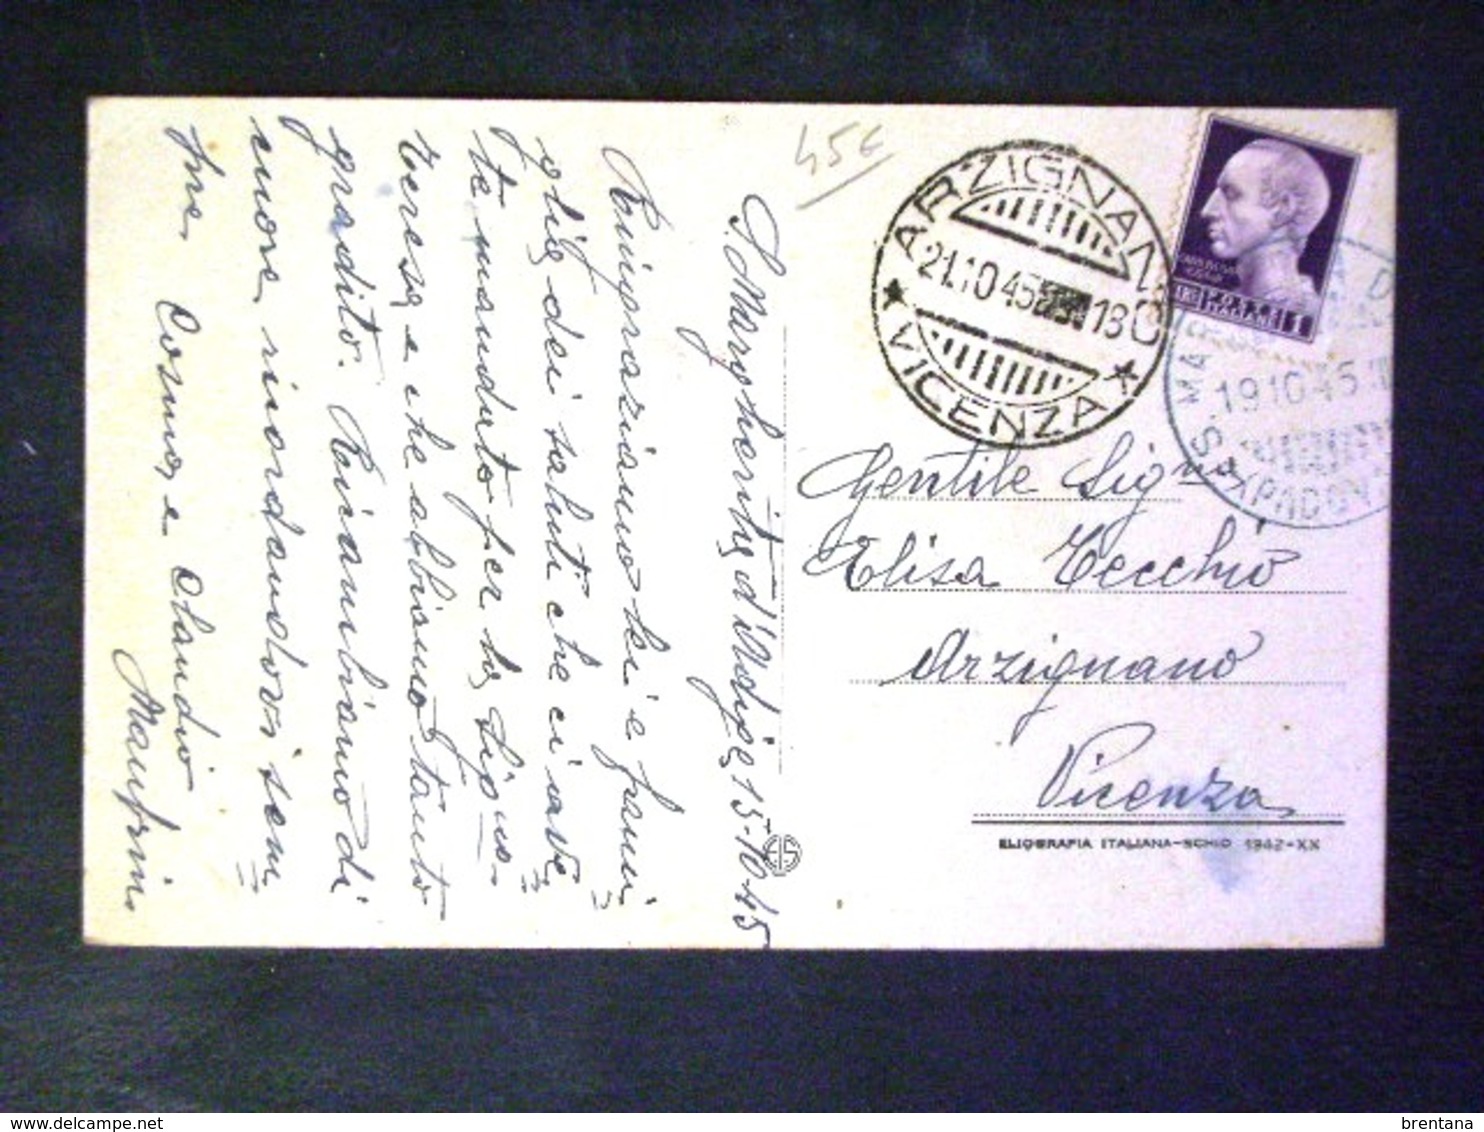 S. Margherita d'Adige 15-10-45
Ringraziamo lei e fami
glia dei saluti che ci ave
te mandato per la Sig.na
Teresa e che abbiamo tanto
gradito. Ricambiamo di
cuore ricordandovi sem
pre. Cosma e Claudio
Manfrin
45€
ARZIGNANO
21.10.45 18
* VICENZA *
LIRE 1
19.10.45
S. MA
PADOVA
Gentile Sig.na
Elisa Tecchio
Arzignano
Vicenza
ELIOGRAFIA ITALIANA-SCHIO 1942-XX
EIS
brentana